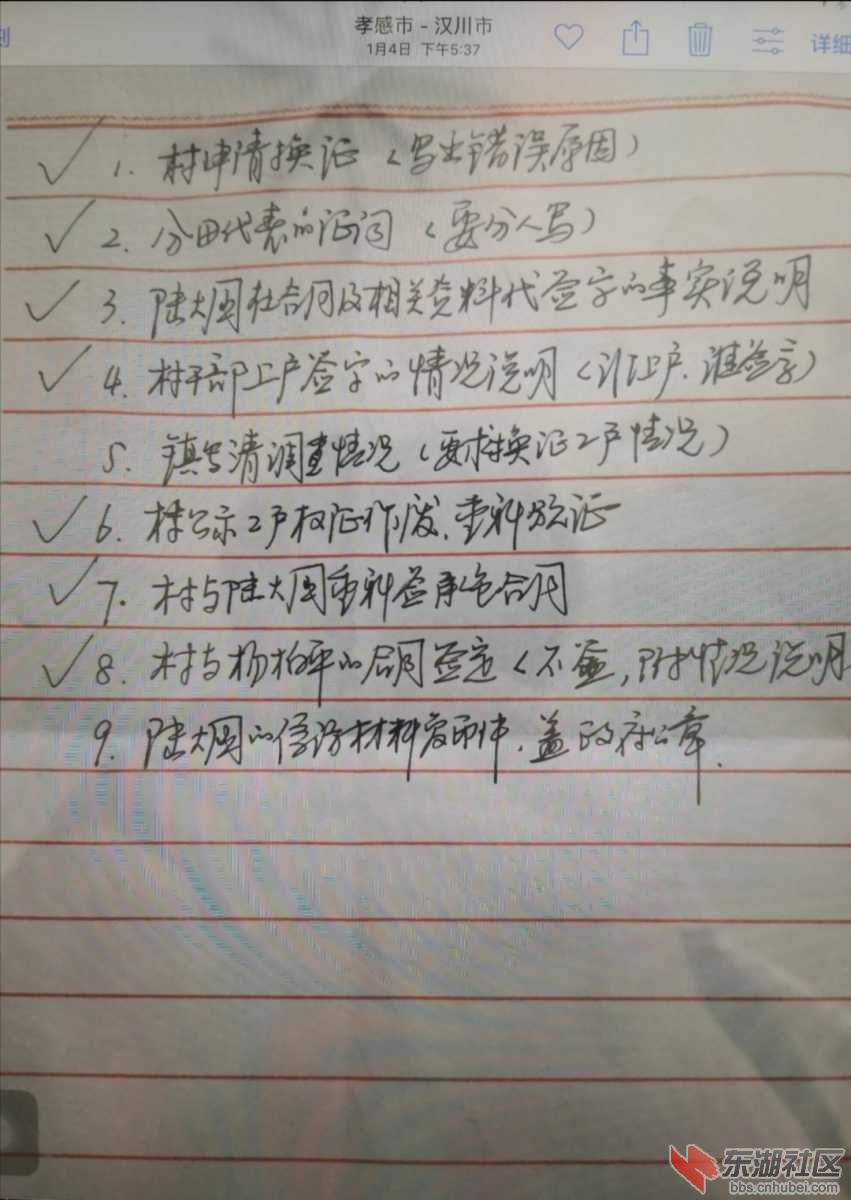 孝感市 - 汉川市
1月4日 下午5:37
详细
✓ 1. 村申请换证（写出错误原因）
✓ 2. 分田代表的证词（要分人写）
✓ 3. 陆大国在合同及相关资料代签字的事实说明
✓ 4. 村干部上户签字的情况说明（谁上户.谁签字）
5. 镇 清调查情况（要求换证2户情况）
✓ 6. 村公示2户权证作废.重新颁证
✓ 7. 村与陆大国重新签承包合同
✓ 8. 村与杨柏平的合同签定（不签，附情况说明
9. 陆大国的信访材料复印件.盖政府公章.
东湖社区
bbs.cnhubei.com